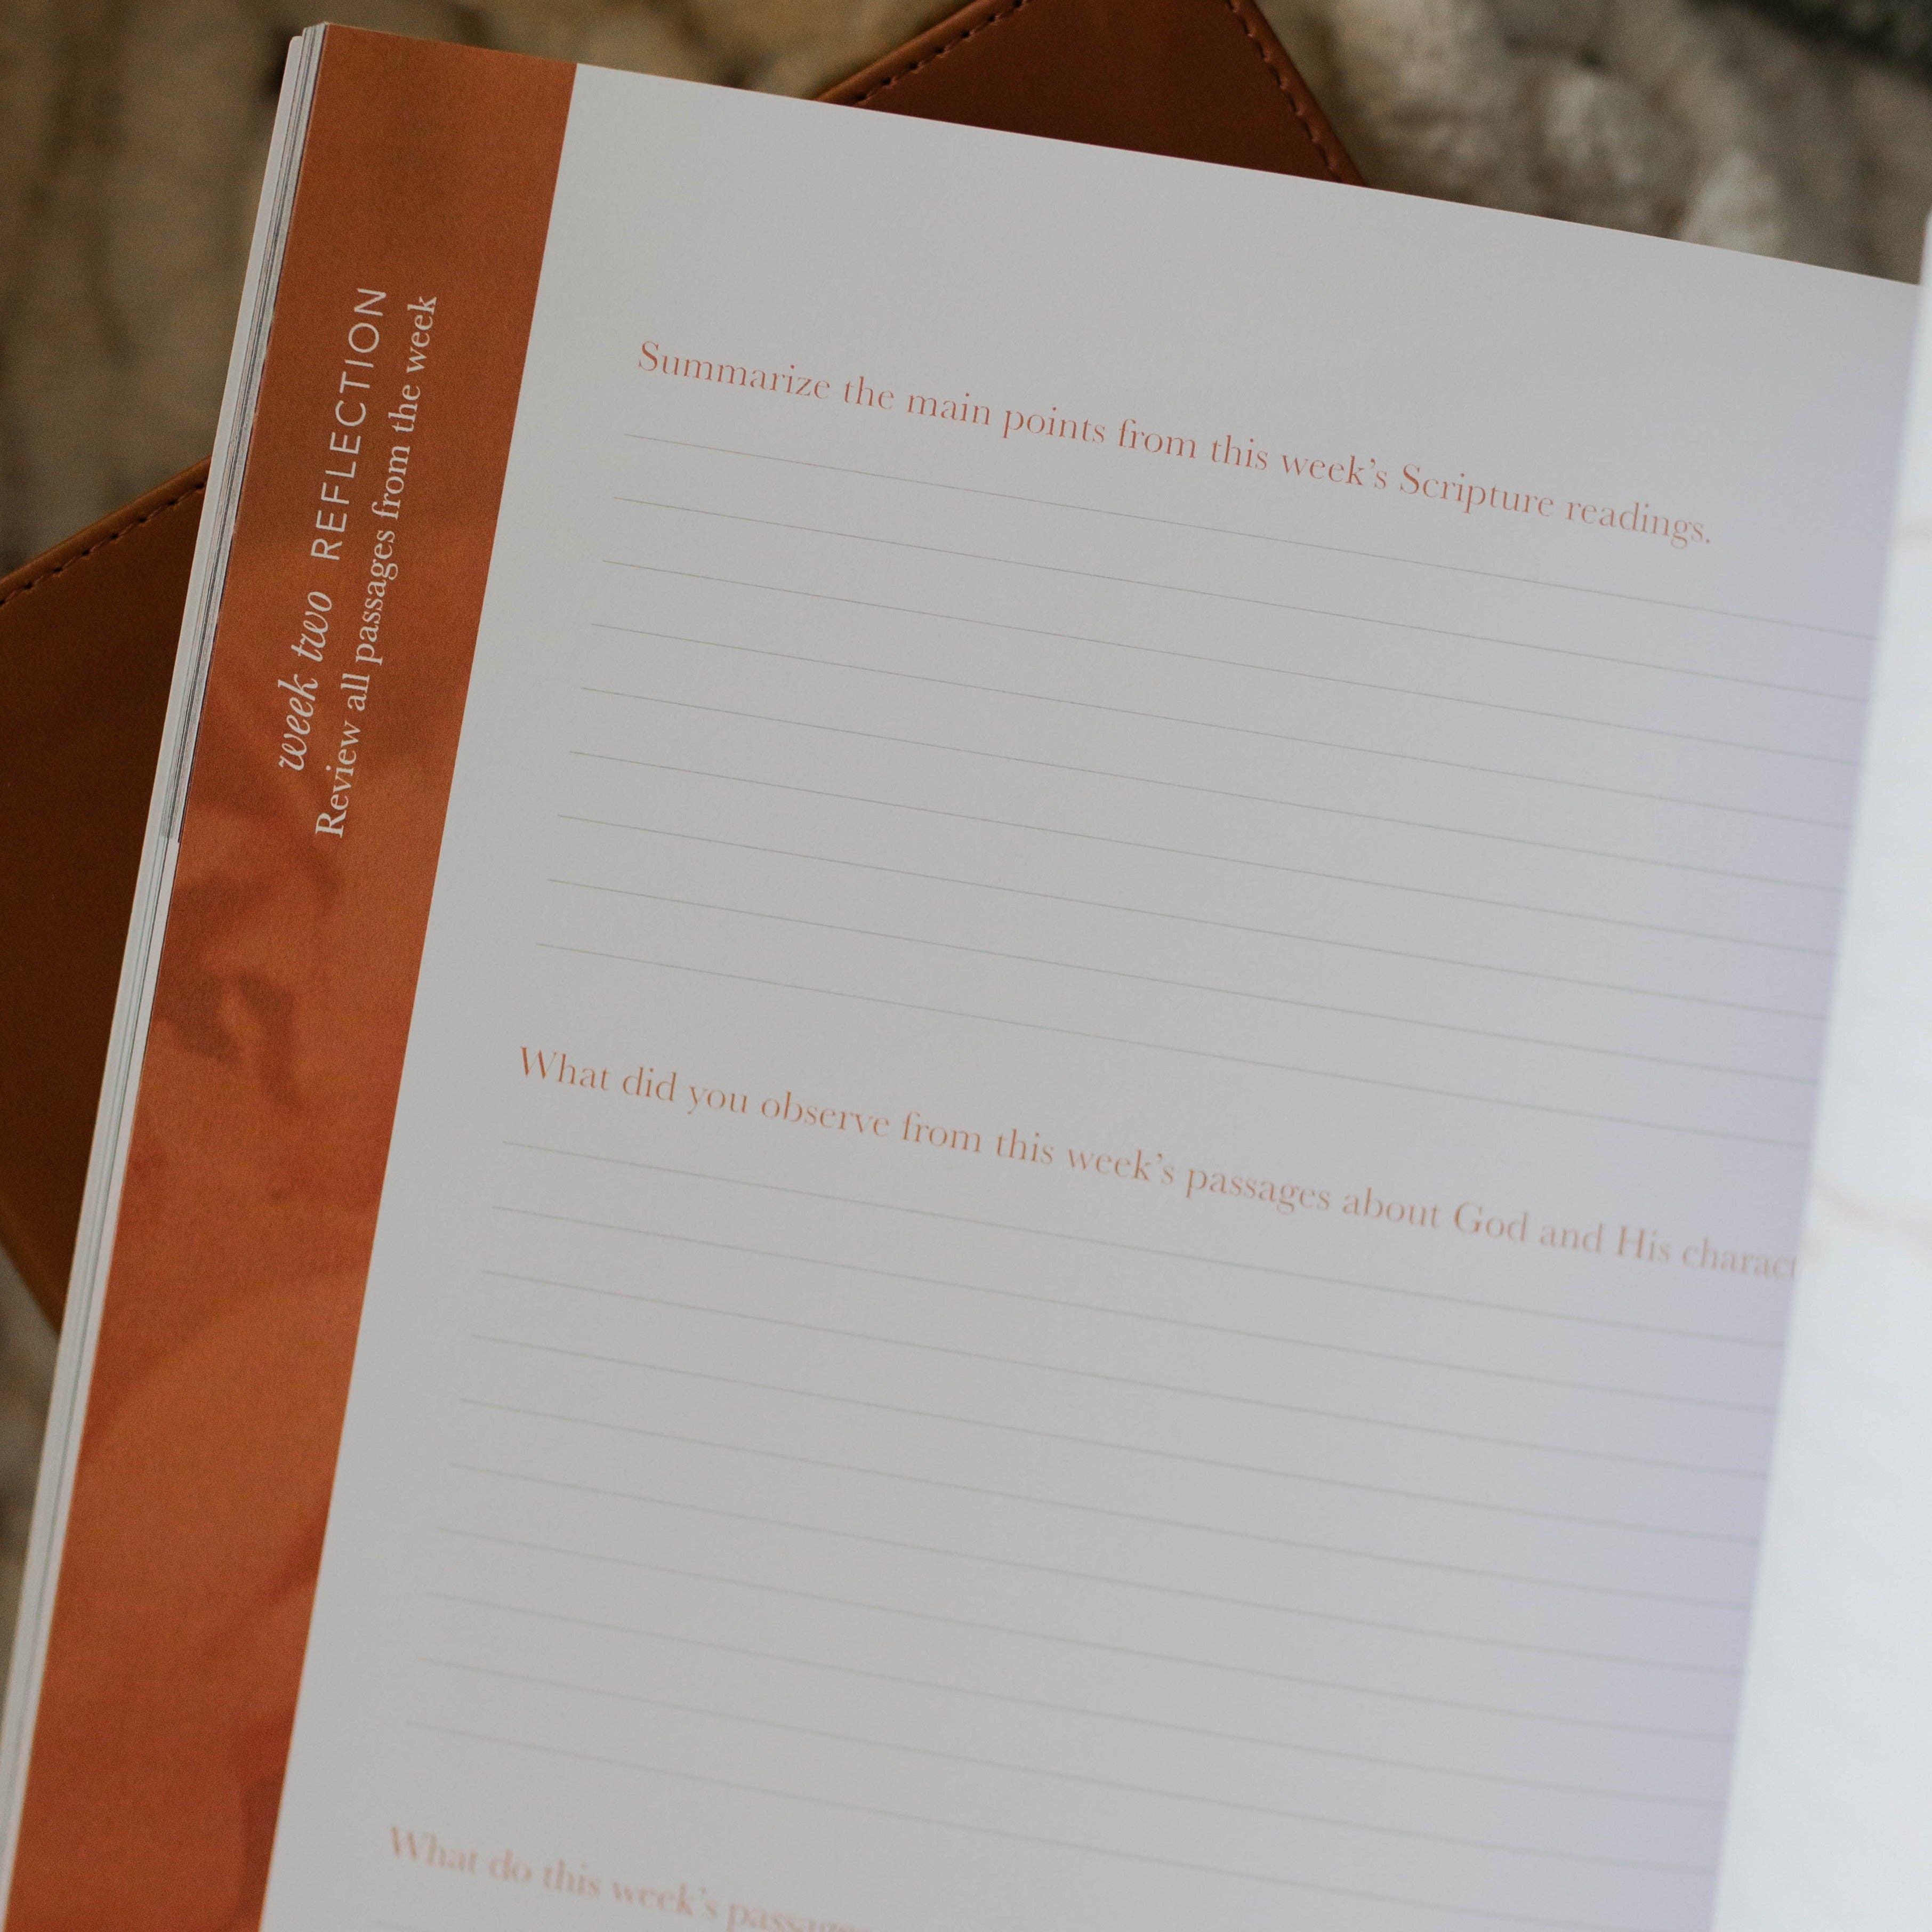 week two REFLECTION
Review all passages from the week
Summarize the main points from this week’s Scripture readings.
What did you observe from this week’s passages about God and His
What do this week’s